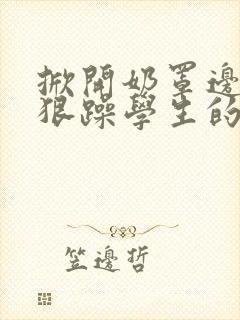 掀開奶罩邊
狠躁學生的
笠邊哲